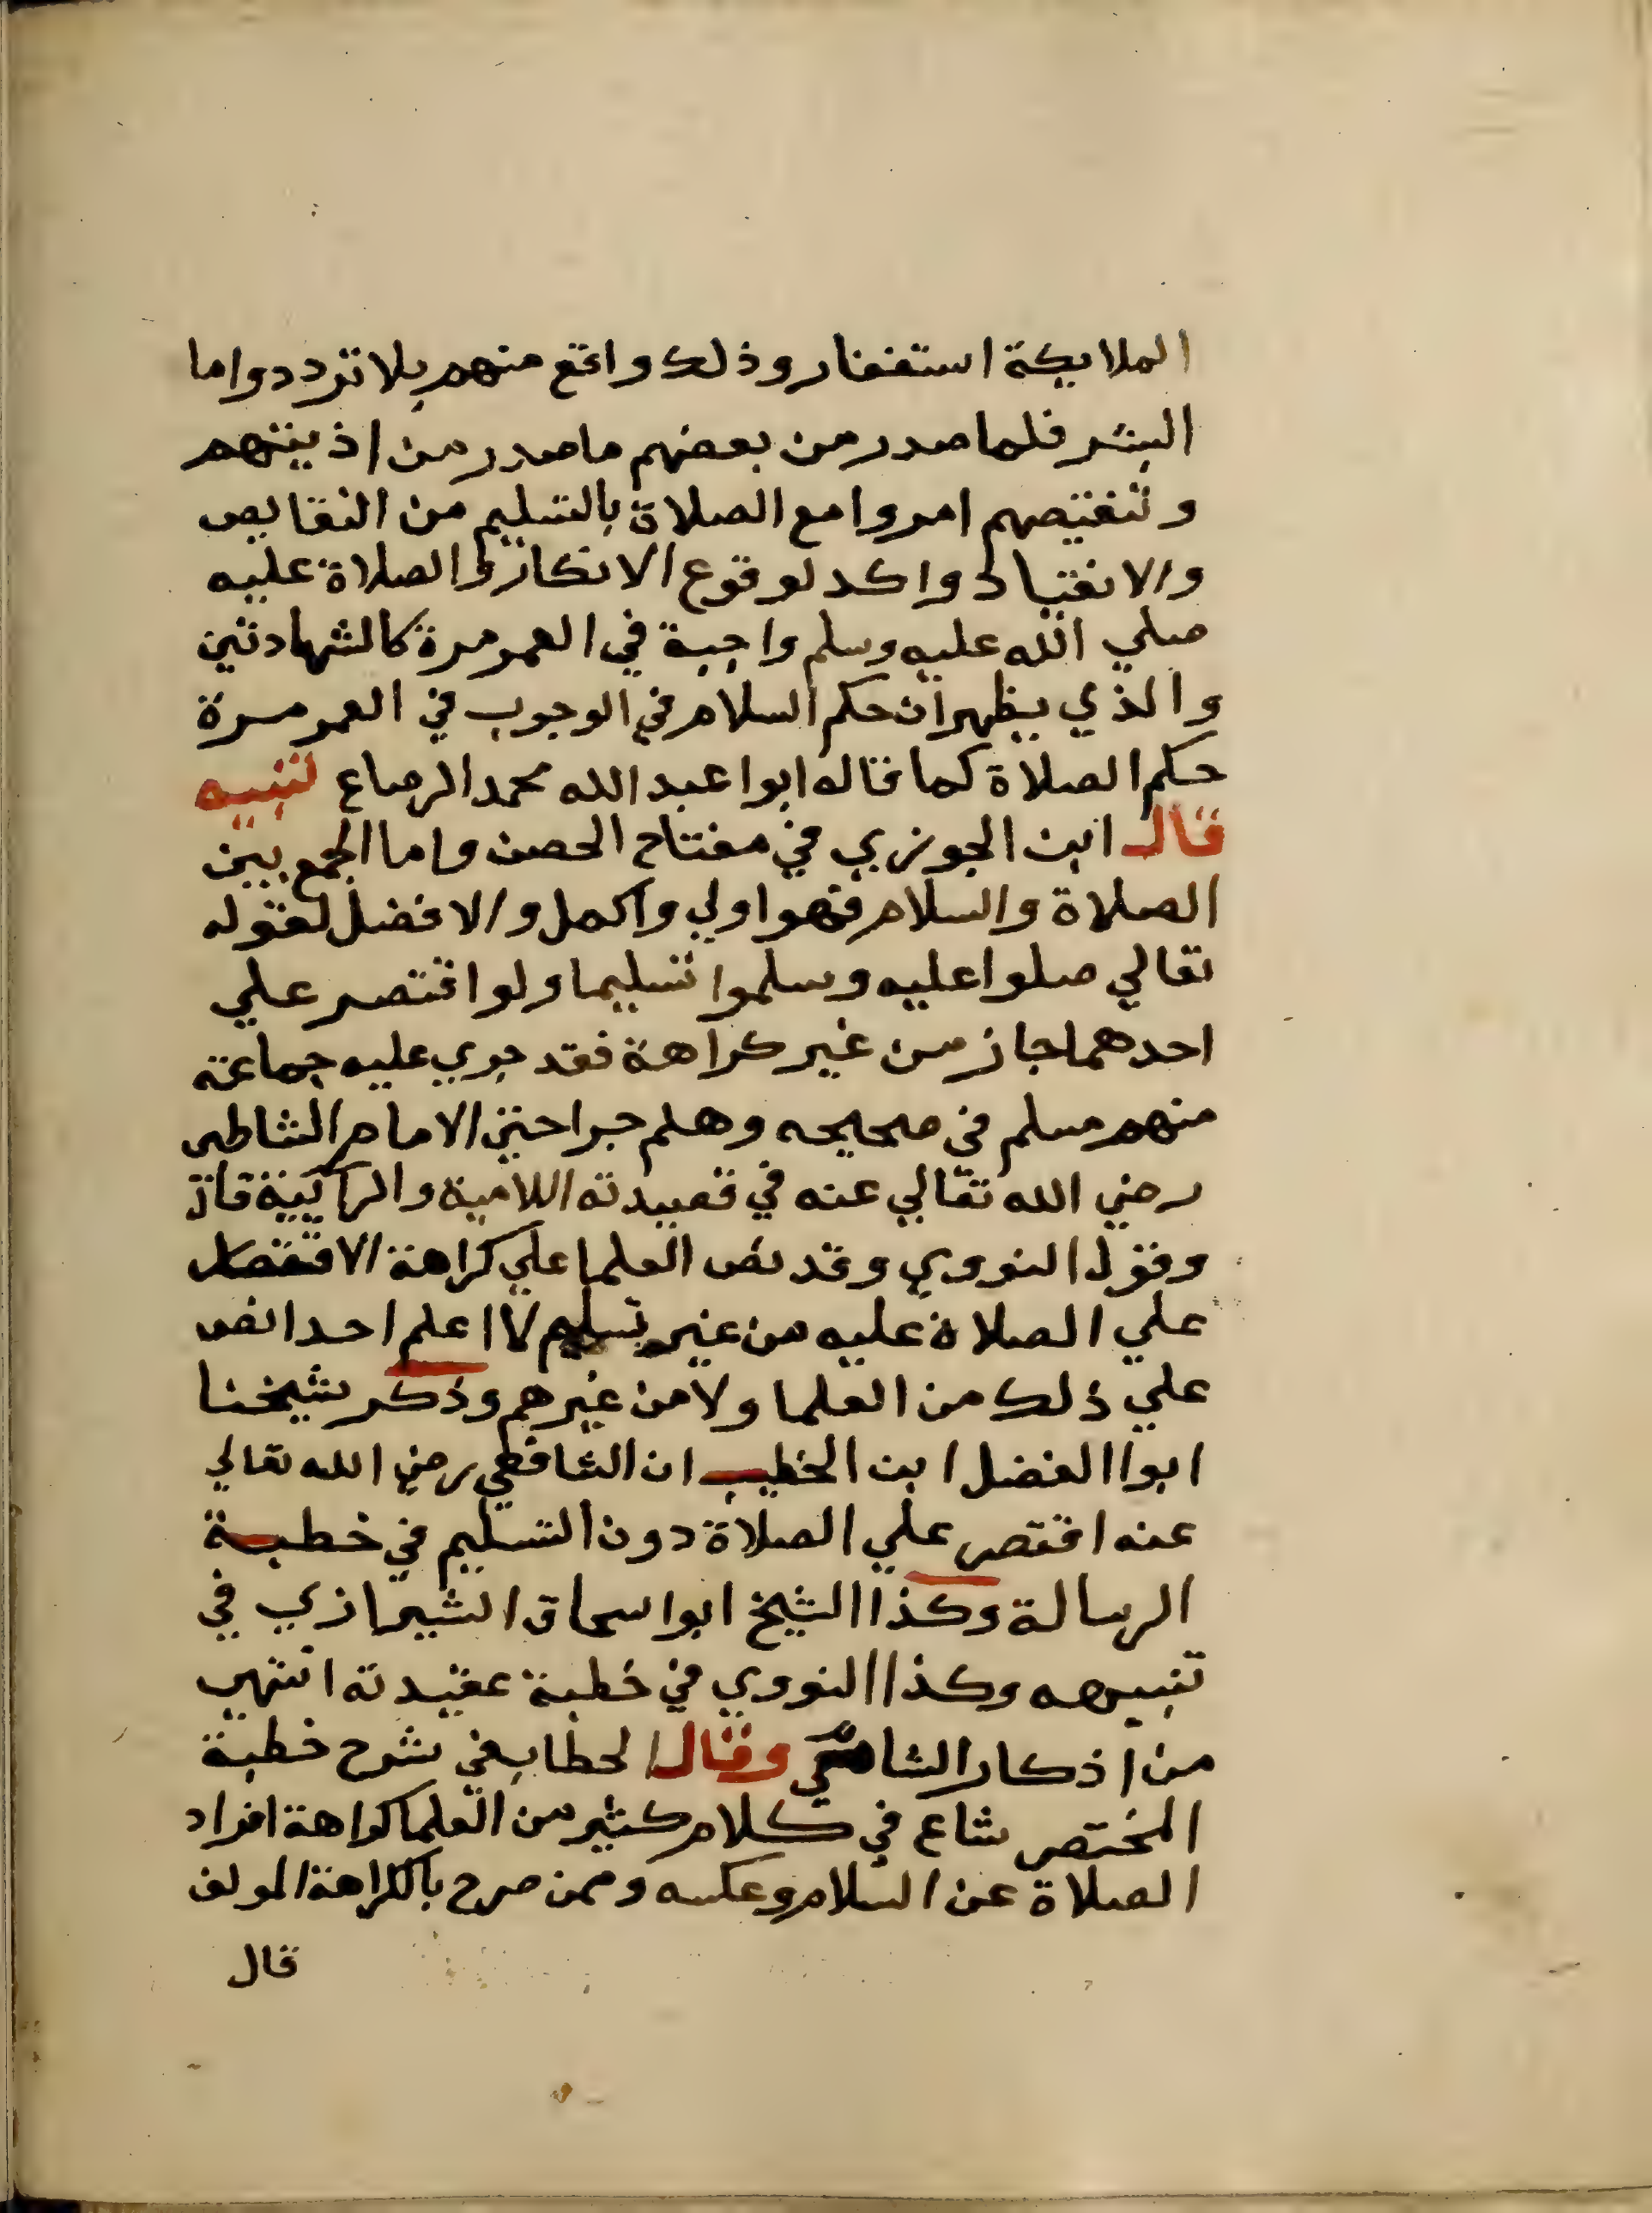 الملايكة استغفار وذلك واقع منهم بلا تردد واما
البشر فلما صدر من بعضهم ما صدر من اذيتهم
وتنغيصهم امروا مع الصلاة بالتسليم من النقايص
والانقياد واكد لوقوع الانكار والصلاة عليه
صلي الله عليه وسلم واجبة في العمر مرة كالشهادتين
والذي يظهر ان حكم السلام في الوجوب في العمر مرة
حكم الصلاة كما قاله ابوا عبد الله محمد الرصاع تنبيه
قال ابن الجوزي في مفتاح الحصن واما الجمع بين
الصلاة والسلام فهو اولي واكمل والافضل لقوله
تعالي صلوا عليه وسلموا تسليما ولو اقتصر علي
احدهما جاز من غير كراهة فقد جري عليه جماعة
منهم مسلم في صحيحه وهلم جرا حتي الامام الشاطبي
رضي الله تعالي عنه في قصيدته اللامية والرائية قال
وقول النووي وقد نص العلما علي كراهة الاقتصار
علي الصلاة عليه من غير تسليم لا اعلم احدا نص
علي ذلك من العلما ولا من غيرهم وذكر شيخنا
ابوا الفضل ابن الخطيب ان الشافعي رضي الله تعالي
عنه اقتصر علي الصلاة دون التسليم في خطبة
الرسالة وكذا الشيخ ابوا سحاق الشيرازي في
تنبيهه وكذا النووي في خطبة عقيدته انتهي
من اذكار الشامي وقال الحطاب في شرح خطبة
المختصر شاع في كلام كثير من العلما كراهة افراد
الصلاة عن السلام وعكسه وممن صرح بالكراهة المولف
قال